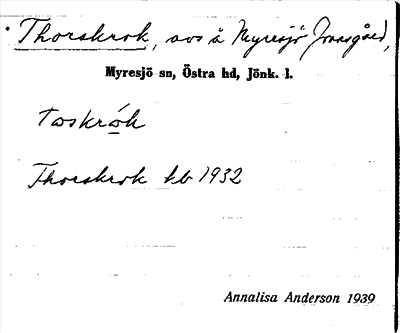 Thorskrok, avs å Myresjö Prästgård,
Myresjö sn, Östra hd, Jönk. l.
toskrók
Thorskrok kb 1932
Annalisa Anderson 1939